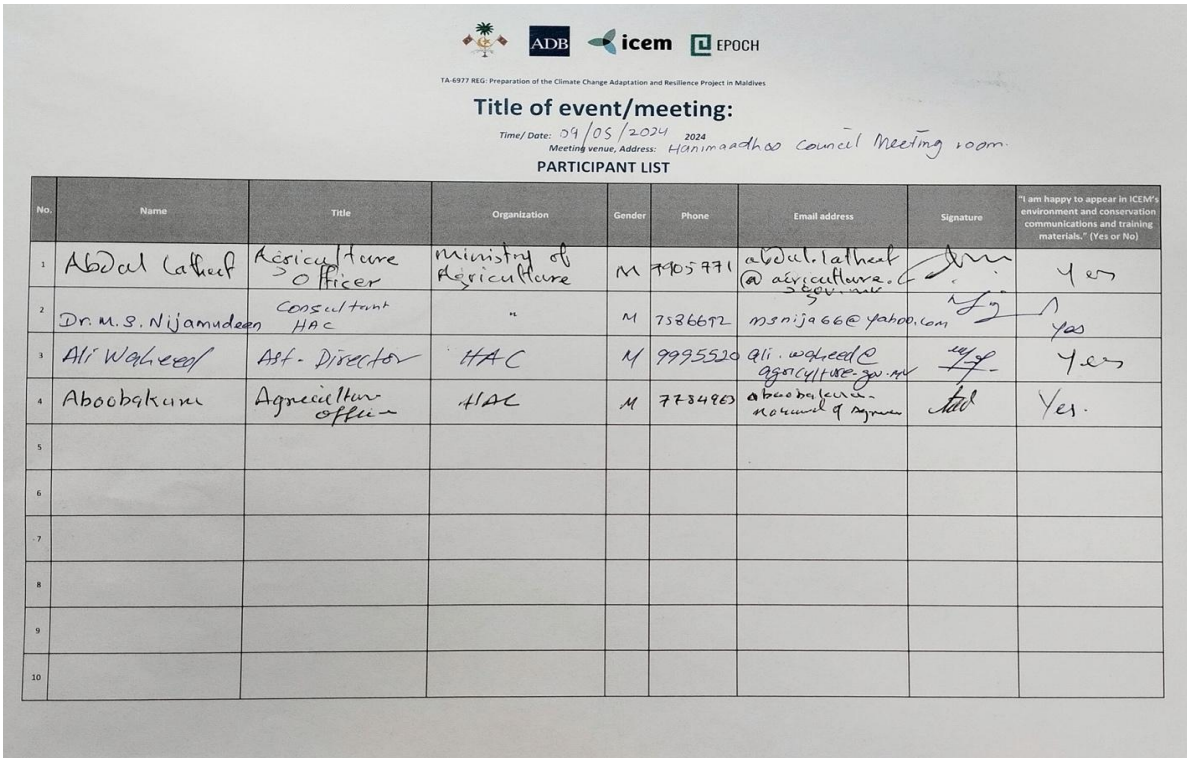 ADB icem EPOCH
TA-6977 REG: Preparation of the Climate Change Adaptation and Resilience Project in Maldives
Title of event/meeting:
Time/ Date: 09/05/2024 2024
Meeting venue, Address: Hanimaadhoo Council Meeting room.
PARTICIPANT LIST
No. Name Title Organization Gender Phone Email address Signature "I am happy to appear in ICEM's environment and conservation communications and training materials." (Yes or No)
1 Abdul Latheef Agriculture Officer Ministry of Agriculture M 7905771 abdul.latheef @ agriculture. gov.mv Yes
2 Dr. M. S. Nijamudeen Consultant HAC " M 7586692 msnija66@yahoo.com Yes
3 Ali Waheed Ast. Director HAC M 9995520 ali.waheed@ agriculture.gov.mv Yes
4 Agriculture HAC M Yes.
5
6
7
8
9
10